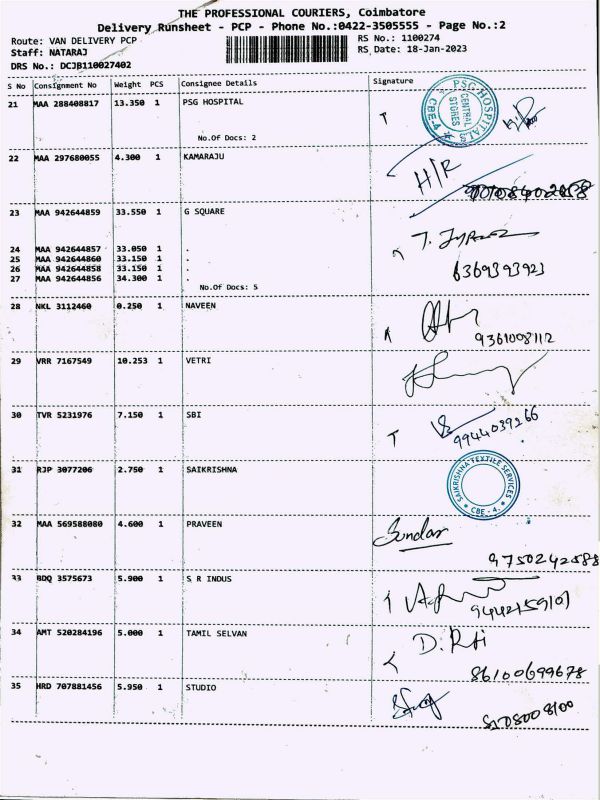 THE PROFESSIONAL COURIERS, Coimbatore
Delivery Runsheet - PCP - Phone No.:0422-3505555 - Page No.:2
Route: VAN DELIVERY PCP RS No.: 1100274
Staff: NATARAJ RS Date: 18-Jan-2023
DRS No.: DCJB110027402
S No Consignment No Weight PCS Consignee Details Signature
21 MAA 288408817 13.350 1 PSG HOSPITAL
PSG HOSPITALS
CENTRAL STORES
CBE-4
No.Of Docs: 2
22 MAA 297680055 4.300 1 KAMARAJU
H/R
23 MAA 942644859 33.550 1 G SQUARE
24 MAA 942644857 33.050 1 .
25 MAA 942644860 33.150 1 .
26 MAA 942644858 33.150 1 .
27 MAA 942644856 34.300 1 .
6369393923
No.Of Docs: 5
28 NKL 3112460 0.250 1 NAVEEN
9361008112
29 VRR 7167549 10.253 1 VETRI
30 TVR 5231976 7.150 1 SBI
9944039266
31 RJP 3077206 2.750 1 SAIKRISHNA
SAIKRISHNA TEXTILE SERVICES
CBE - 4.
32 MAA 569588080 4.600 1 PRAVEEN
Sundar
9750242588
33 BDQ 3575673 5.900 1 S R INDUS
34 AMT 520284196 5.000 1 TAMIL SELVAN
86100699678
35 HRD 707881456 5.950 1 STUDIO